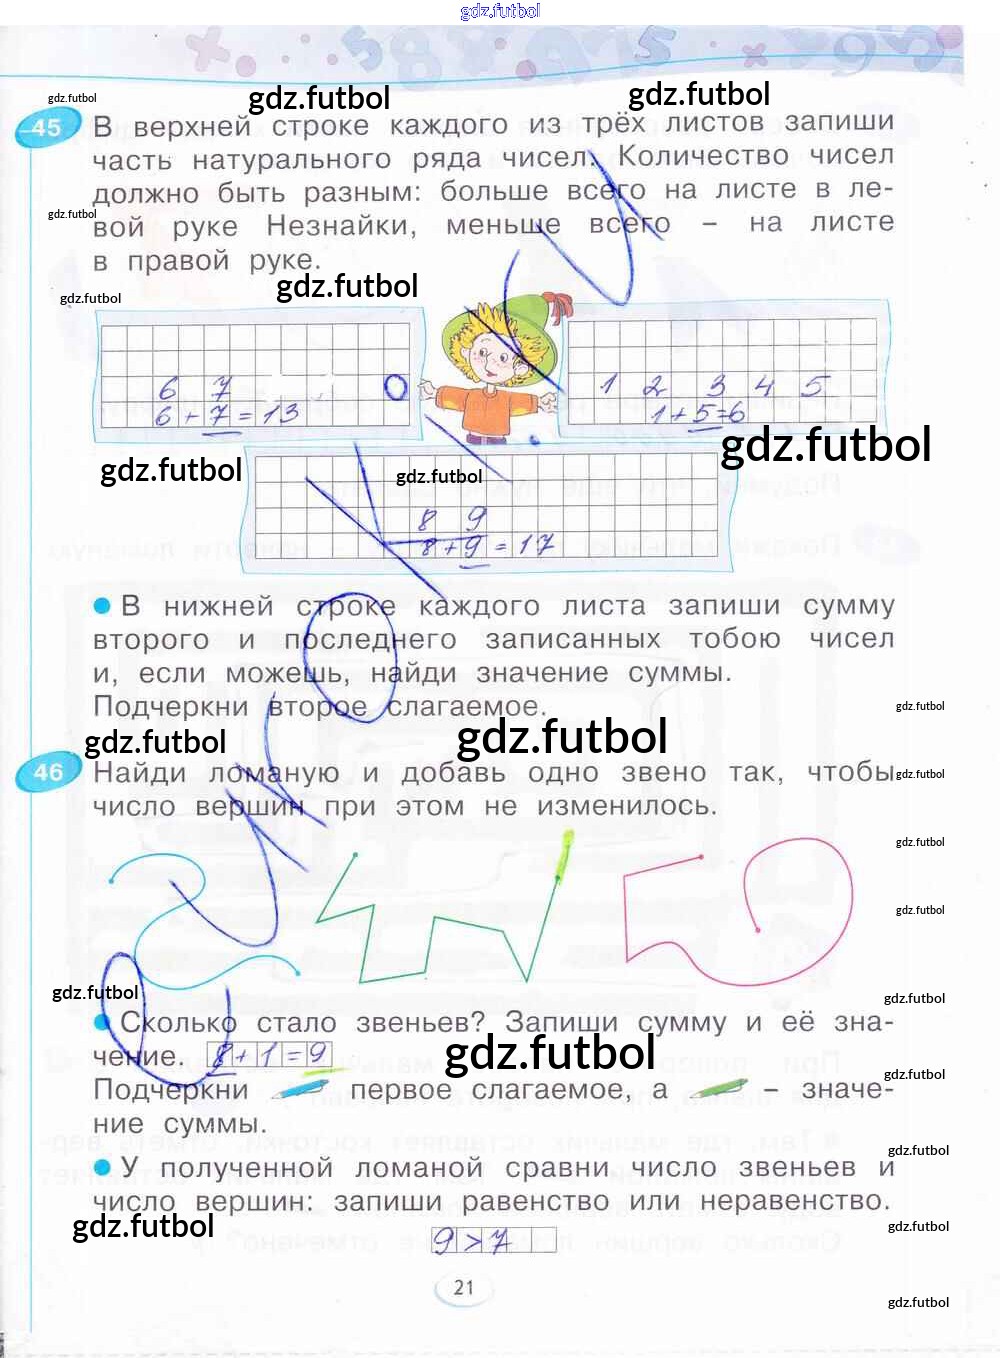 gdz.futbol
gdz.futbol
gdz.futbol
gdz.futbol
45 В верхней строке каждого из трёх листов запиши
часть натурального ряда чисел. Количество чисел
должно быть разным: больше всего на листе в ле-
gdz.futbol
вой руке Незнайки, меньше всего – на листе
в правой руке.
gdz.futbol
gdz.futbol
6 7
6 + 7 = 13
1 2 3 4 5
1 + 5 = 6
gdz.futbol
gdz.futbol
gdz.futbol
8 9
8 + 9 = 17
В нижней строке каждого листа запиши сумму
второго и последнего записанных тобою чисел
и, если можешь, найди значение суммы.
Подчеркни второе слагаемое.
gdz.futbol
gdz.futbol
gdz.futbol
46 Найди ломаную и добавь одно звено так, чтобы
gdz.futbol
число вершин при этом не изменилось.
gdz.futbol
gdz.futbol
gdz.futbol
gdz.futbol
Сколько стало звеньев? Запиши сумму и её зна-
чение. 8 + 1 = 9
gdz.futbol
gdz.futbol
Подчеркни первое слагаемое, а – значе-
ние суммы.
gdz.futbol
У полученной ломаной сравни число звеньев и
число вершин: запиши равенство или неравенство.
gdz.futbol
gdz.futbol
9 > 7
21
gdz.futbol